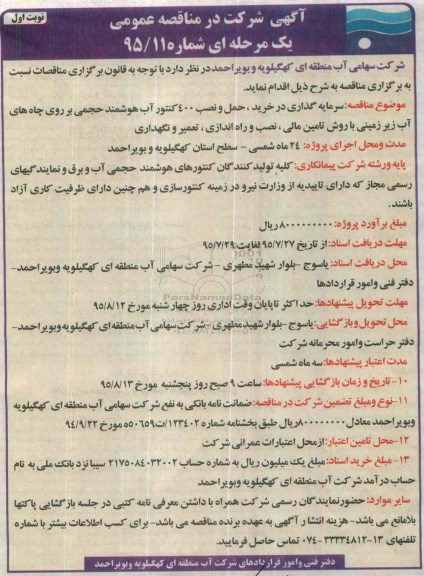 نوبت اول
آگهی شرکت در مناقصه عمومی
یک مرحله ای شماره ۹۵/۱۱
شرکت سهامی آب منطقه ای کهگیلویه و بویراحمد در نظر دارد با توجه به قانون برگزاری مناقصات نسبت
به برگزاری مناقصه به شرح ذیل اقدام نماید.
موضوع مناقصه: سرمایه گذاری در خرید ، حمل و نصب ۴۰۰ کنتور آب هوشمند حجمی بر روی چاه های
آب زیر زمینی با روش تامین مالی ، نصب و راه اندازی ، تعمیر و نگهداری
مدت ومحل اجرای پروژه: ۲۴ ماه شمسی - سطح استان کهگیلویه و بویراحمد
پایه ورشته شرکت پیمانکاری: کلیه تولید کنندگان کنتورهای هوشمند حجمی آب و برق و نمایندگیهای
رسمی مجاز که دارای تاییدیه از وزارت نیرو در زمینه کنتورسازی و هم چنین دارای ظرفیت کاری آزاد
باشند.
مبلغ برآورد پروژه: ۸۰۰۰۰۰۰۰۰۰ ریال
مهلت دریافت اسناد: از تاریخ ۹۵/۷/۲۷ لغایت ۹۵/۷/۲۹
محل دریافت اسناد: یاسوج -بلوار شهید مطهری - شرکت سهامی آب منطقه ای کهگیلویه وبویراحمد-
دفتر فنی وامور قراردادها
مهلت تحویل پیشنهادها: حد اکثر تا پایان وقت اداری روز چهار شنبه مورخ ۹۵/۸/۱۲
محل تحویل وبازگشایی: یاسوج -بلوار شهید مطهری -شرکت سهامی آب منطقه ای کهگیلویه وبویراحمد-
دفتر حراست وامور محرمانه شرکت
مدت اعتبار پیشنهادها: سه ماه شمسی
۱۰- تاریخ و زمان بازگشایی پیشنهادها: ساعت ۹ صبح روز پنجشنبه مورخ ۹۵/۸/۱۳
۱۱-نوع ومبلغ تضمین شرکت در مناقصه: ضمانت نامه بانکی به نفع شرکت سهامی آب منطقه ای کهگیلویه
وبویراحمد معادل ریال طبق بخشنامه شماره ۱۲۳۴۰۲/ت۵۰۶۵۹ه مورخ ۹۴/۹/۲۲
۱۲-محل تامین اعتبار: از محل اعتبارات عمرانی شرکت
۱۳-مبلغ خرید اسناد: مبلغ یک میلیون ریال به شماره حساب ۲۱۷۵۰۸۴۰۳۲۰۰۲ سیبا نزد بانک ملی به نام
حساب درآمد شرکت آب منطقه ای کهگیلویه وبویراحمد
سایر موارد: حضور نمایندگان رسمی شرکت همراه با داشتن معرفی نامه کتبی در جلسه بازگشایی پاکتها
بلامانع می باشد- هزینه انتشار آگهی به عهده برنده مناقصه می باشد- برای کسب اطلاعات بیشتر با شماره
تلفنهای ۱۳-۳۳۳۳۴۸۱۲-۰۷۴ تماس حاصل فرمایید.
دفتر فنی وامور قراردادهای شرکت آب منطقه ای کهگیلویه وبویراحمد